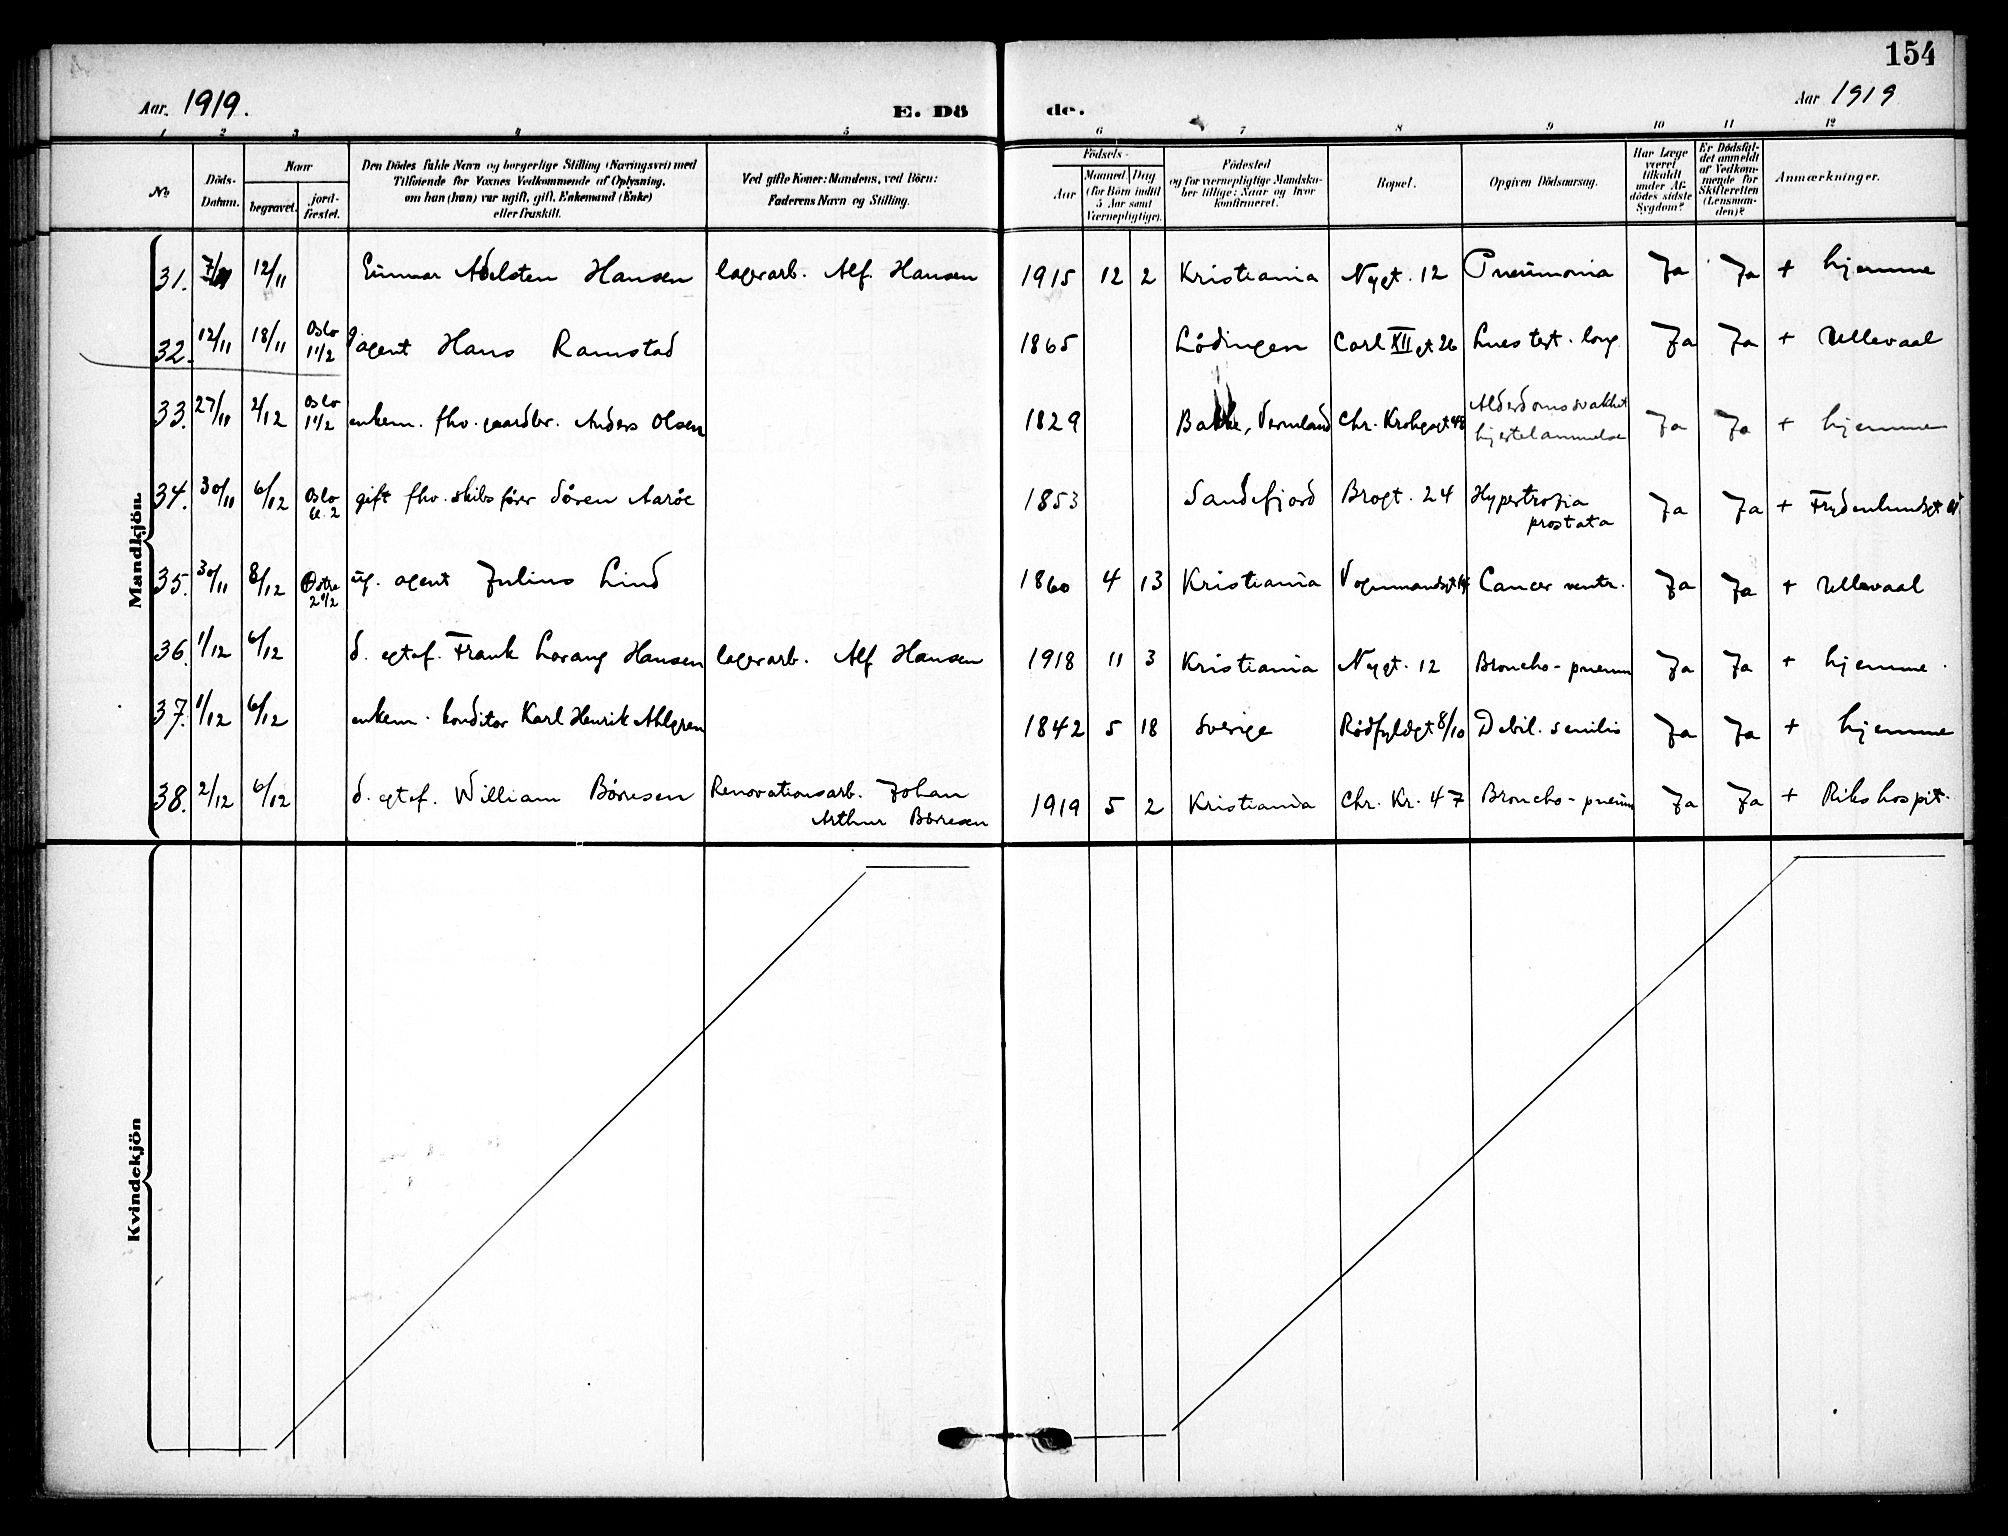 154
Aar. 1919.
E. Dö de.
Aar 1919
1 2 3 4 5 6 7 8 9 10 11 12
No
Döds-Datum.
Naar
begravet.
jord-fæstet.
Den Dödes fulde Navn og borgerlige Stilling (Næringsvei) med
Tilföiende for Voxnes Vedkommende af Oplysning,
om han (hun) var ugift, gift, Enkemand (Enke)
eller fraskilt.
Ved gifte Koner: Mandens, ved Börn:
Faderens Navn og Stilling.
Födsels-
Aar
Maaned Dag
(for Börn indtil
5 Aar samt
Værnepligtige).
Födested
og for værnepligtige Mandska-
ber tillige: Naar og hvor
konfirmeret.
Bopæl.
Opgiven Dödsaarsag.
Har Læge
været
tilkaldt
under Af-
dödes sidste
Sygdom?
Er Dödsfal-
det anmeldt
af Vedkom-
mende for
Skifteretten
(Lensman-
den)?
Anmærkninger.
Mandkjön.
31. 12/11 Hansen lagerarb. Alf. Hansen 1915 12 2 Kristiania Nygt. 12 Pneumonia Ja Ja + hjemme
32. 12/11 18/11 Oslo 1 1/2 agent Hans Ramstad 1865 Lödingen Carl XII gt 26 Ja Ja + Ullevaal
33. 27/11 2/12 Oslo 1 1/2 enkem. fhv. gaardbr. Anders Olsen 1829 Vermland Chr. Krohgsgt 48 Alderdomssvakhet
hjertelammelse Ja Ja + hjemme
34. 30/11 6/12 Oslo kl. 2 gift fhv. skibsförer Sören Aaröe 1853 Sandefjord Brogt. 24 Hypertrofia
prostata Ja Ja + Frydenlundsgt
35. 30/11 8/12 Östre 2 1/2 ug. agent Julius Lind 1860 4 13 Kristiania Vognmandsgt 14 Cancer ventr. Ja Ja + Ullevaal
36. 1/12 6/12 d. egtef. Frank Lorang Hansen lagerarb. Alf Hansen 1918 11 3 Kristiania Nygt. 12 Broncho-pneum Ja Ja + hjemme.
37. 1/12 6/12 enkem. konditor Karl Henrik Ahlgren 1842 5 18 Sverige Rödfyldgt 8/10 Debil. senilis Ja Ja + hjemme
38. 2/12 6/12 d. egtef. William Börresen Renovationsarb. Johan
Arthur Börresen 1919 5 2 Kristiania Chr. Kr. 47 Broncho-pneum Ja Ja + Rikshospit.
Kvindekjön